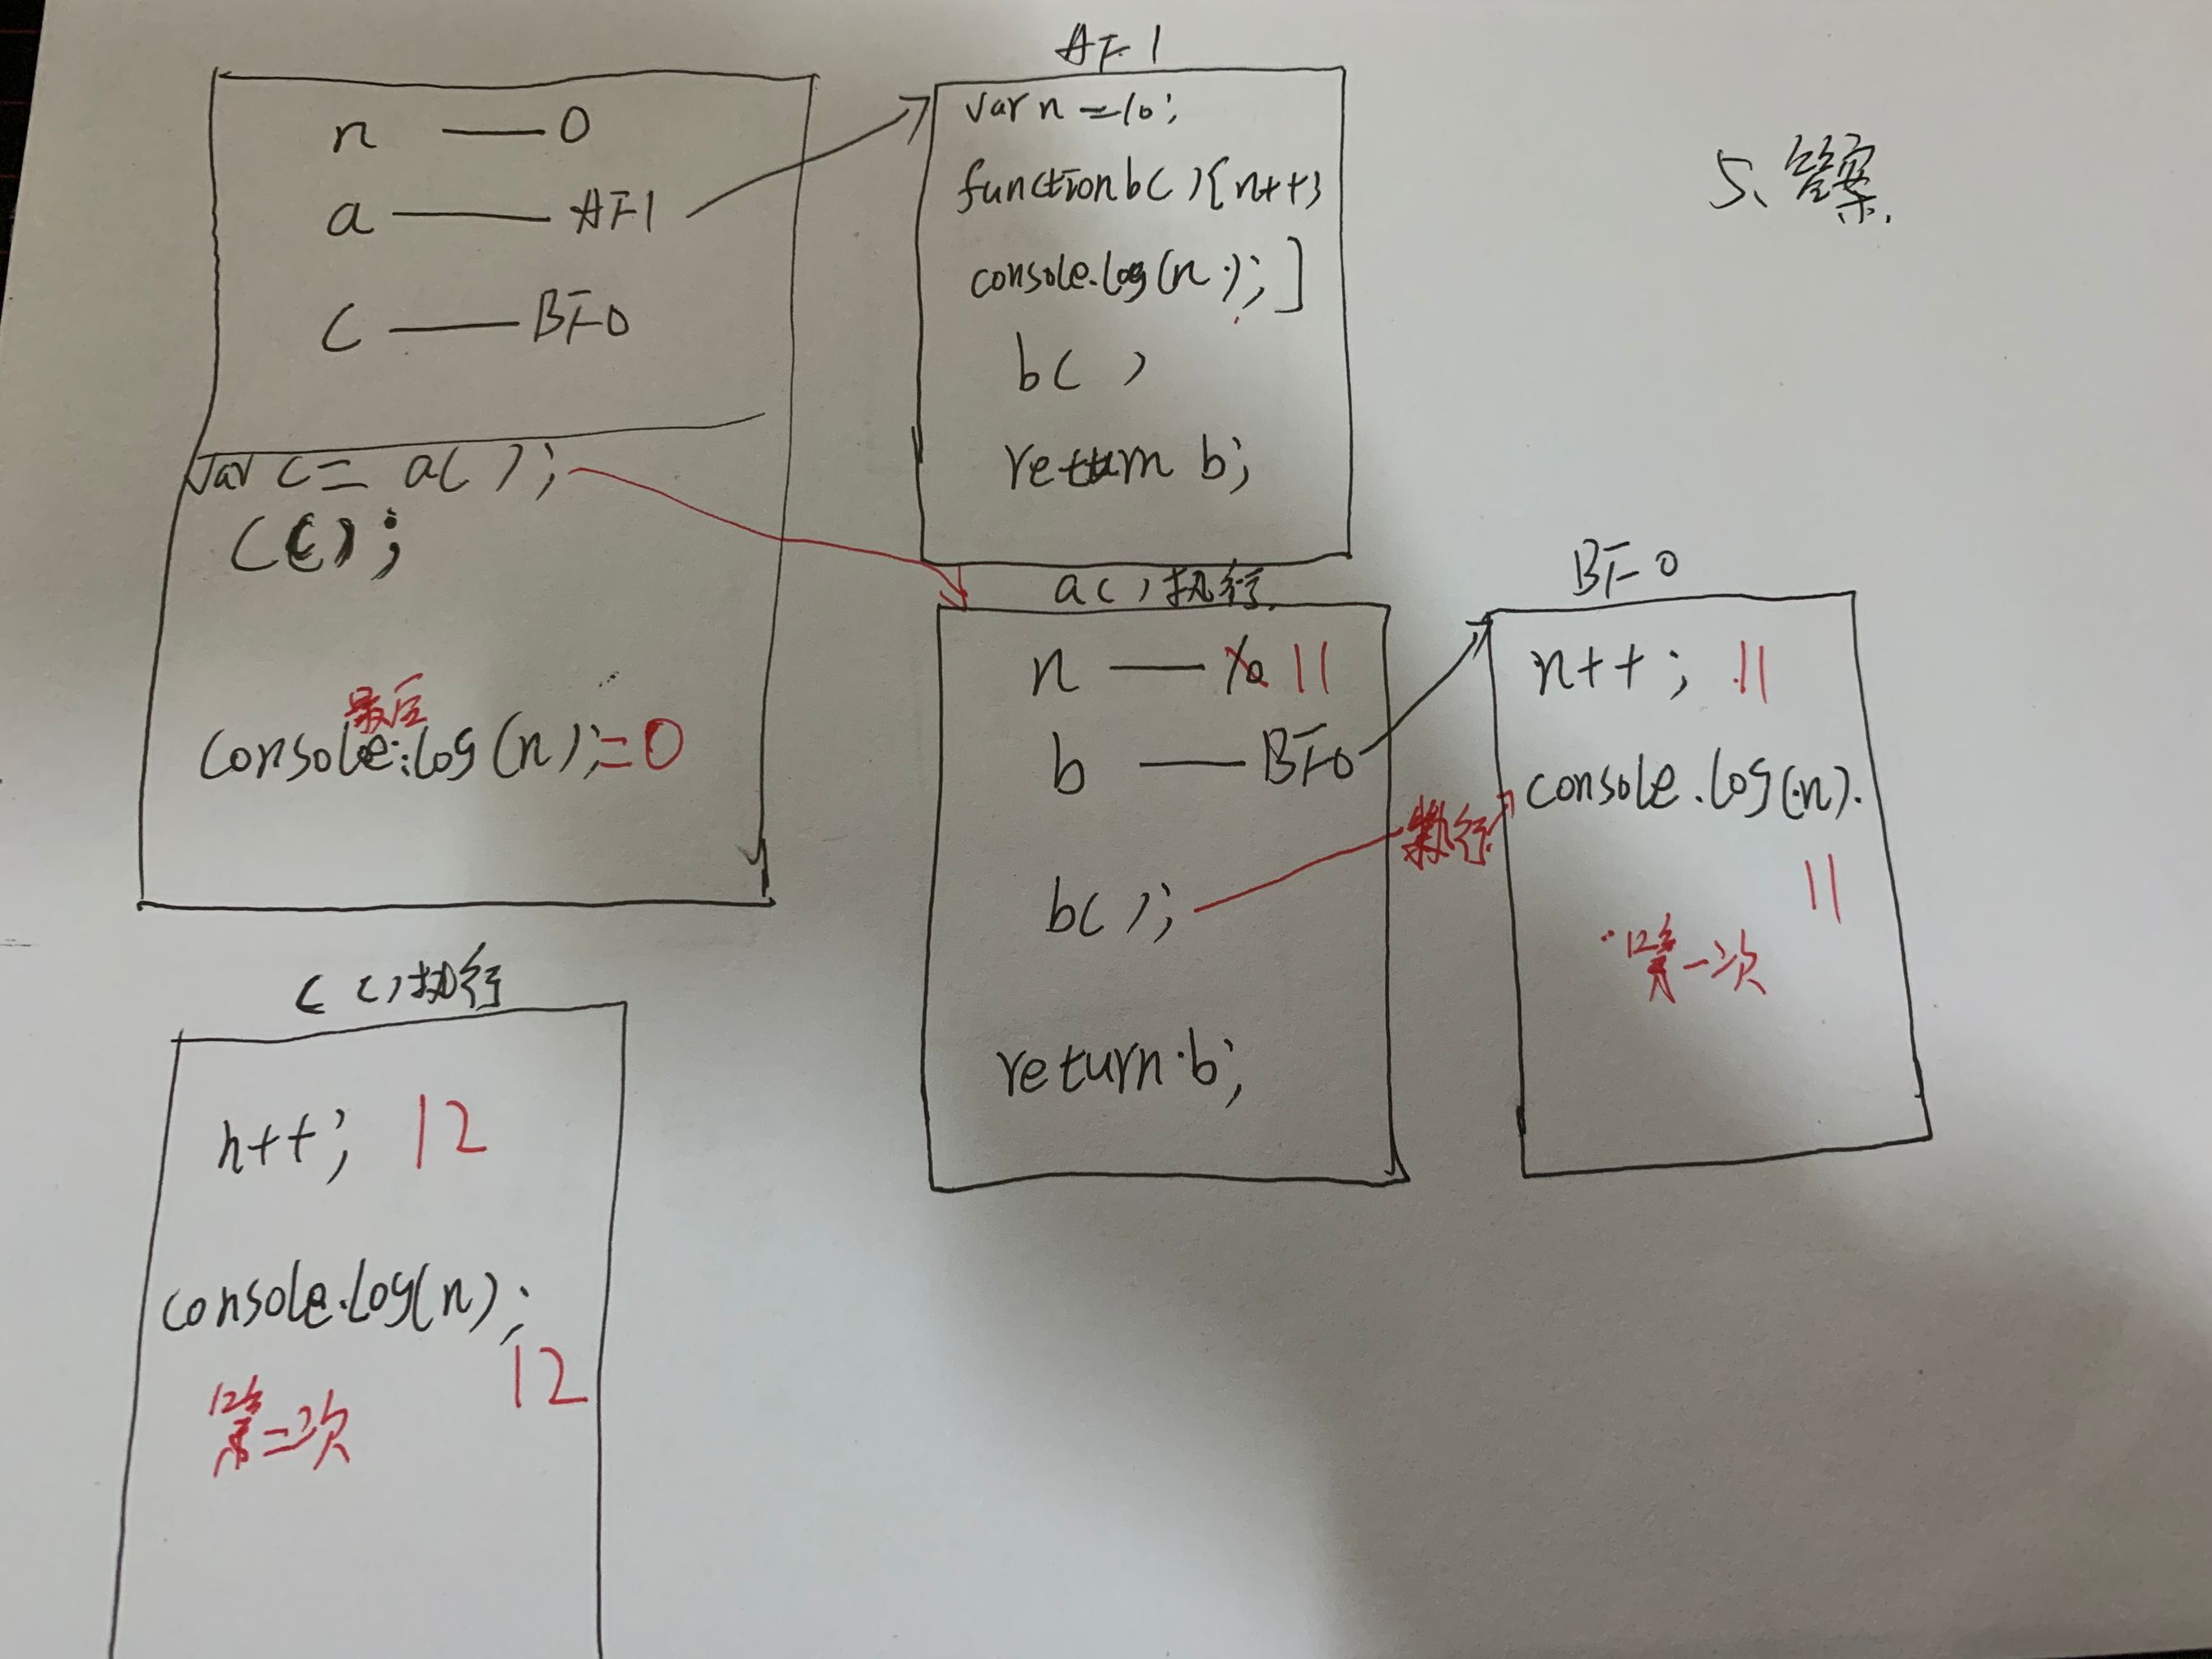 5、答案.
n — 0
a — AF1
c — BF0
var c = a( );
c( );
最后
console.log(n);=0
AF1
var n = 10;
function b( ){ n++;
console.log(n);}
b( )
return b;
a( )执行
n — 10 11
b — BF0
b( ); 执行
return b;
BF0
n++; 11
console.log(n).
11
第一次
c( )执行
n++; 12
console.log(n);
12
第二次